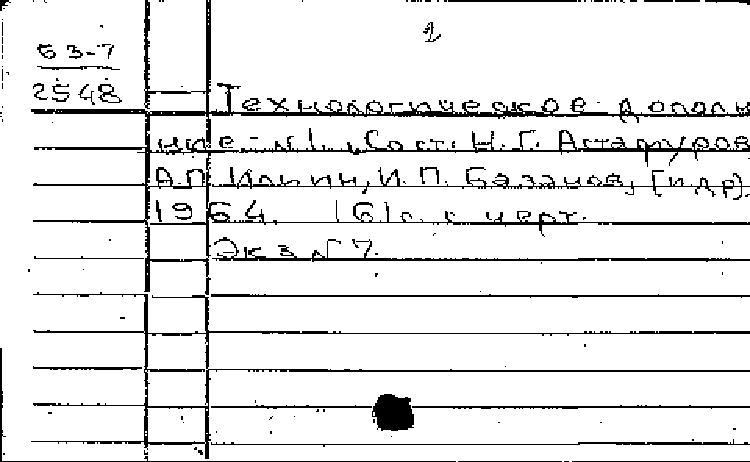 2
53-7
2548
— Технологическое дополн
ние - №1., Сост. Н.Г. Астафуров
А.П. Ильин, И.П. Базанов, [и др].
1964. 161с. с черт.
Экз №7.